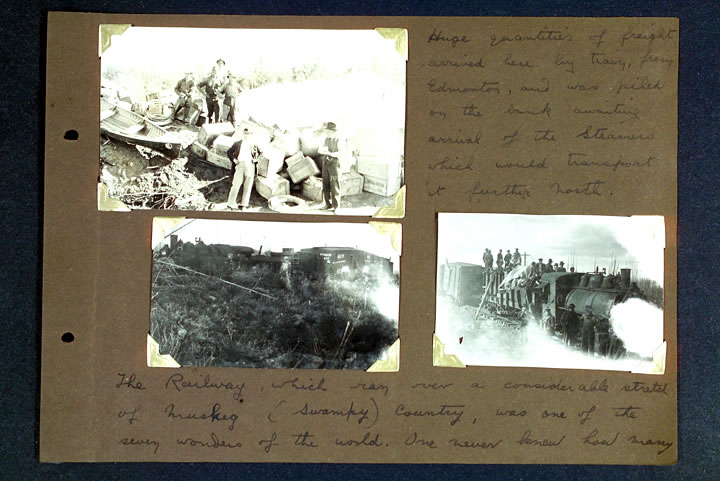 Huge quantities of freight
arrived here by train, from
Edmonton, and was piled
on the bank awaiting
arrival of the Steamers
which would transport
it further North.
The Railway, which ran over a considerable stretch
of Muskeg (Swampy) Country, was one of the
seven wonders of the world. One never knew how many